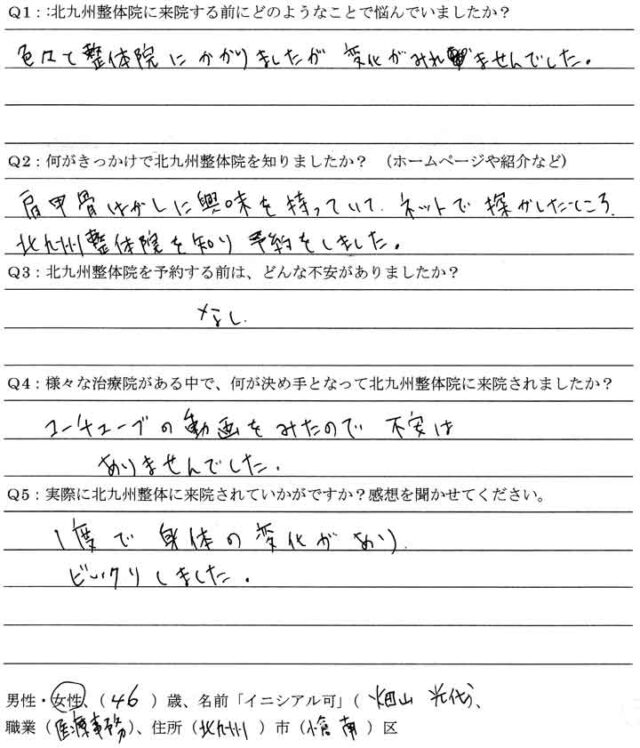 Q1：:北九州整体院に来院する前にどのようなことで悩んでいましたか？
色々と整体院にかかりましたが 変化がみれませんでした。
Q2：何がきっかけで北九州整体院を知りましたか？ （ホームページや紹介など）
肩甲骨はがしに興味を持っていて、ネットで探がしたところ
北九州整体院を知り予約をしました。
Q3：北九州整体院を予約する前は、どんな不安がありましたか？
なし
Q4：様々な治療院がある中で、何が決め手となって北九州整体院に来院されましたか？
ユーチューブの動画をみたので 不安は
ありませんでした。
Q5：実際に北九州整体に来院されていかがですか？感想を聞かせてください。
1度で身体の変化があり
ビックリしました。
男性・女性、（46）歳、名前「イニシアル可」（畑山 光代）、
職業（医療事務）、住所（北九州）市（小倉南）区